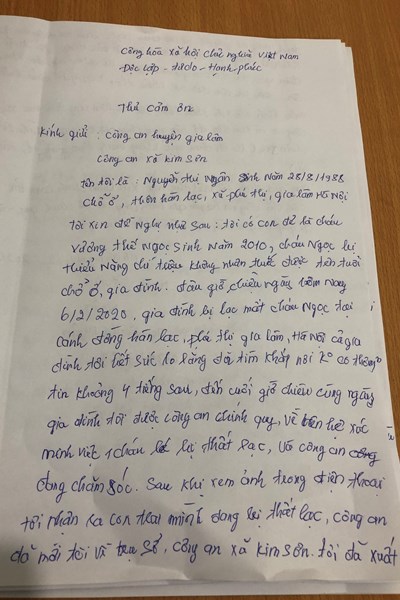 Cộng hòa xã hội chủ nghĩa Việt Nam
Độc lập - tự do - Hạnh phúc
Thư cảm ơn
Kính gửi: công an huyện gia lâm
công an xã kim sơn
tên tôi là: Nguyễn thị Ngân Sinh năm 28/8/1988
chỗ ở, thôn hàn lạc, xã phú thị, gia lâm Hà Nội
tôi xin đề nghị như sau: tôi có con đẻ là cháu
Vương thế Ngọc sinh năm 2010, cháu Ngọc bị
thiểu năng chí tuệ không nhận thức được tên tuổi
chỗ ở, gia đình. đầu giờ chiều ngày hôm nay
6/2/2020. gia đình bị lạc mất cháu Ngọc tại
cánh đồng hàn lạc, phú thị gia lâm, Hà Nội cả gia
đình tôi hết sức lo lắng đã tìm khắp nơi ko có thông
tin khoảng 4 tiếng sau, đến cuối giờ chiều cùng ngày
gia đình tôi được công an chính quy, về liên hệ xác
minh việc 1 cháu bé bị thất lạc, và công an
đang chăm sóc. Sau khi xem ảnh trong điện thoại
tôi nhận ra con trai mình đang bị thất lạc, công an
đã mời tôi về trụ sở, công an xã kim sơn. tôi đã xuất